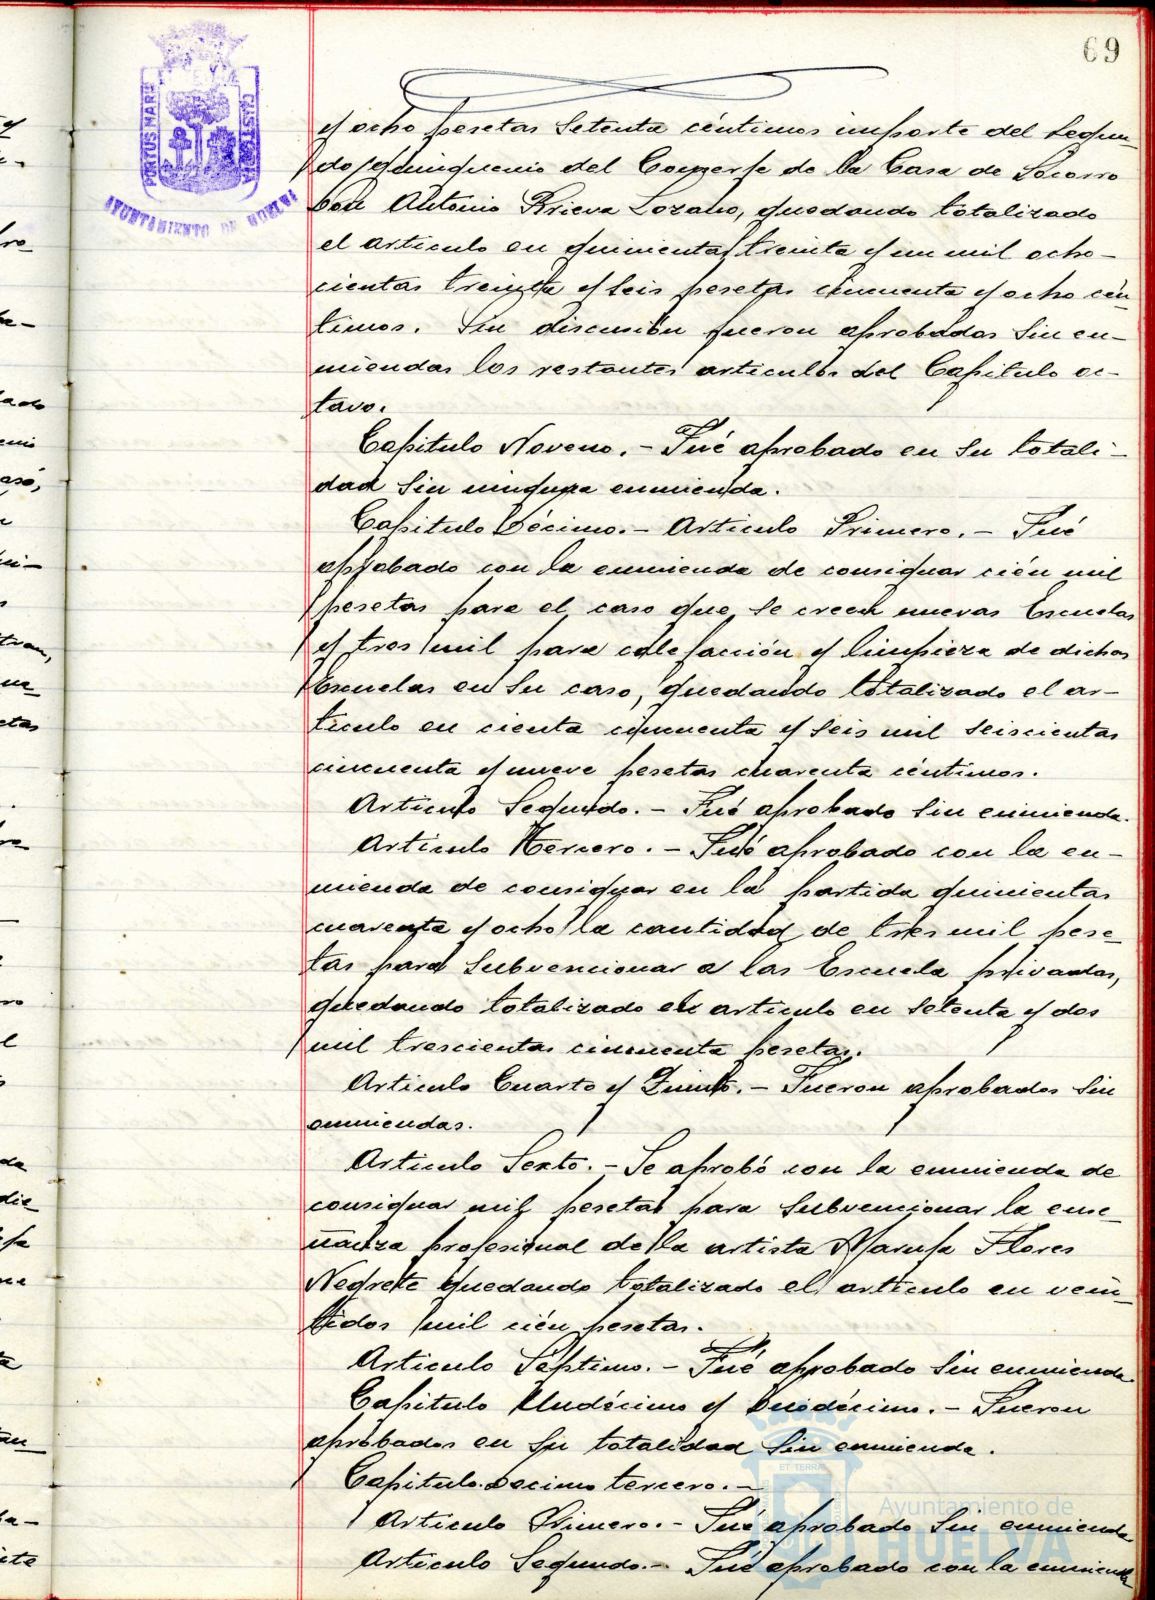 69
PORTUS MARIS ET TERRAE CUSTODIA
AYUNTAMIENTO DE HUELVA
y ocho pesetas setenta céntimos importe del segun-
do quinquenio del Conserje de la Casa de Socorro
Don Antonio Lozano, quedando totalizado
el articulo en quinientas treinta y un mil ocho-
cientas treinta y seis pesetas cincuenta y ocho cén-
timos. Sin discusión fueron aprobados sin en-
miendas los restantes articulos del Capitulo oc-
tavo.
Capitulo Noveno.- Fué aprobado en su totali-
dad sin ninguna enmienda.
Capitulo Décimo.- Articulo Primero.- Fué
aprobado con la enmienda de consignar cién mil
pesetas para el caso que se creen nuevas Escuelas
y tres mil para calefacción y limpieza de dichas
Escuelas en su caso, quedando totalizado el ar-
ticulo en cienta cincuenta y seis mil seiscientas
cincuenta y nueve pesetas cuarenta céntimos.
Articulo Segundo.- Fué aprobado sin enmienda.
Articulo Tercero.- Fué aprobado con la en-
mienda de consignar en la partida quinientas
cuarenta y ocho la cantidad de tres mil pese-
tas para subvencionar a las Escuela privadas,
quedando totalizado el articulo en setenta y dos
mil trescientas cincuenta pesetas.
Articulo Cuarto y Quinto.- Fueron aprobados sin
enmiendas.
Articulo Sexto.- Se aprobó con la enmienda de
consignar mil pesetas para subvencionar la ense-
ñanza profesional de la artista Maruja Flores
Negrete quedando totalizado el articulo en vein-
tidos mil cién pesetas.
Articulo Séptimo.- Fué aprobado sin enmienda.
Capitulo Undécimo y Duodécimo.- Fueron
aprobados en su totalidad sin enmienda.
Capitulo Decimo tercero.-
Articulo Primero.- Fué aprobado sin enmienda
Articulo Segundo.- Fué aprobado con la enmienda
ET TERRAE
Ayuntamiento de
HUELVA